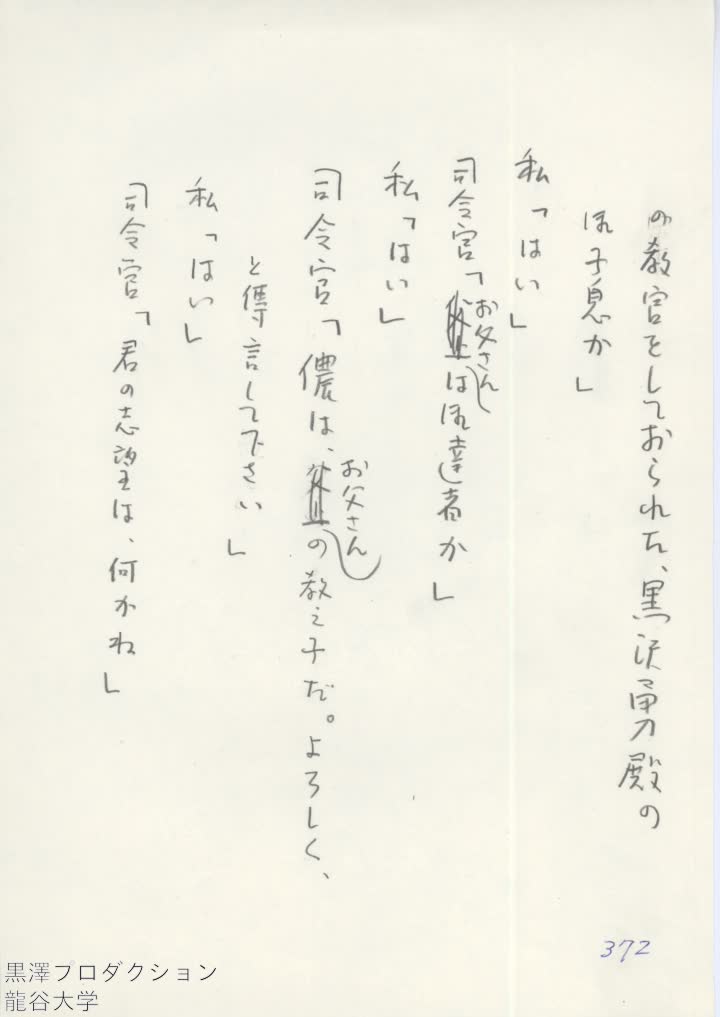 の教官をしておられた、黒沢勇殿の
御子息か」
私「はい」
司令官「お父さんは御達者か」
私「はい」
司令官「儂は、お父さんの教え子だ。よろしく、
と傳言して下さい」
私「はい」
司令官「君の志望は、何かね」
372
黒澤プロダクション
龍谷大学